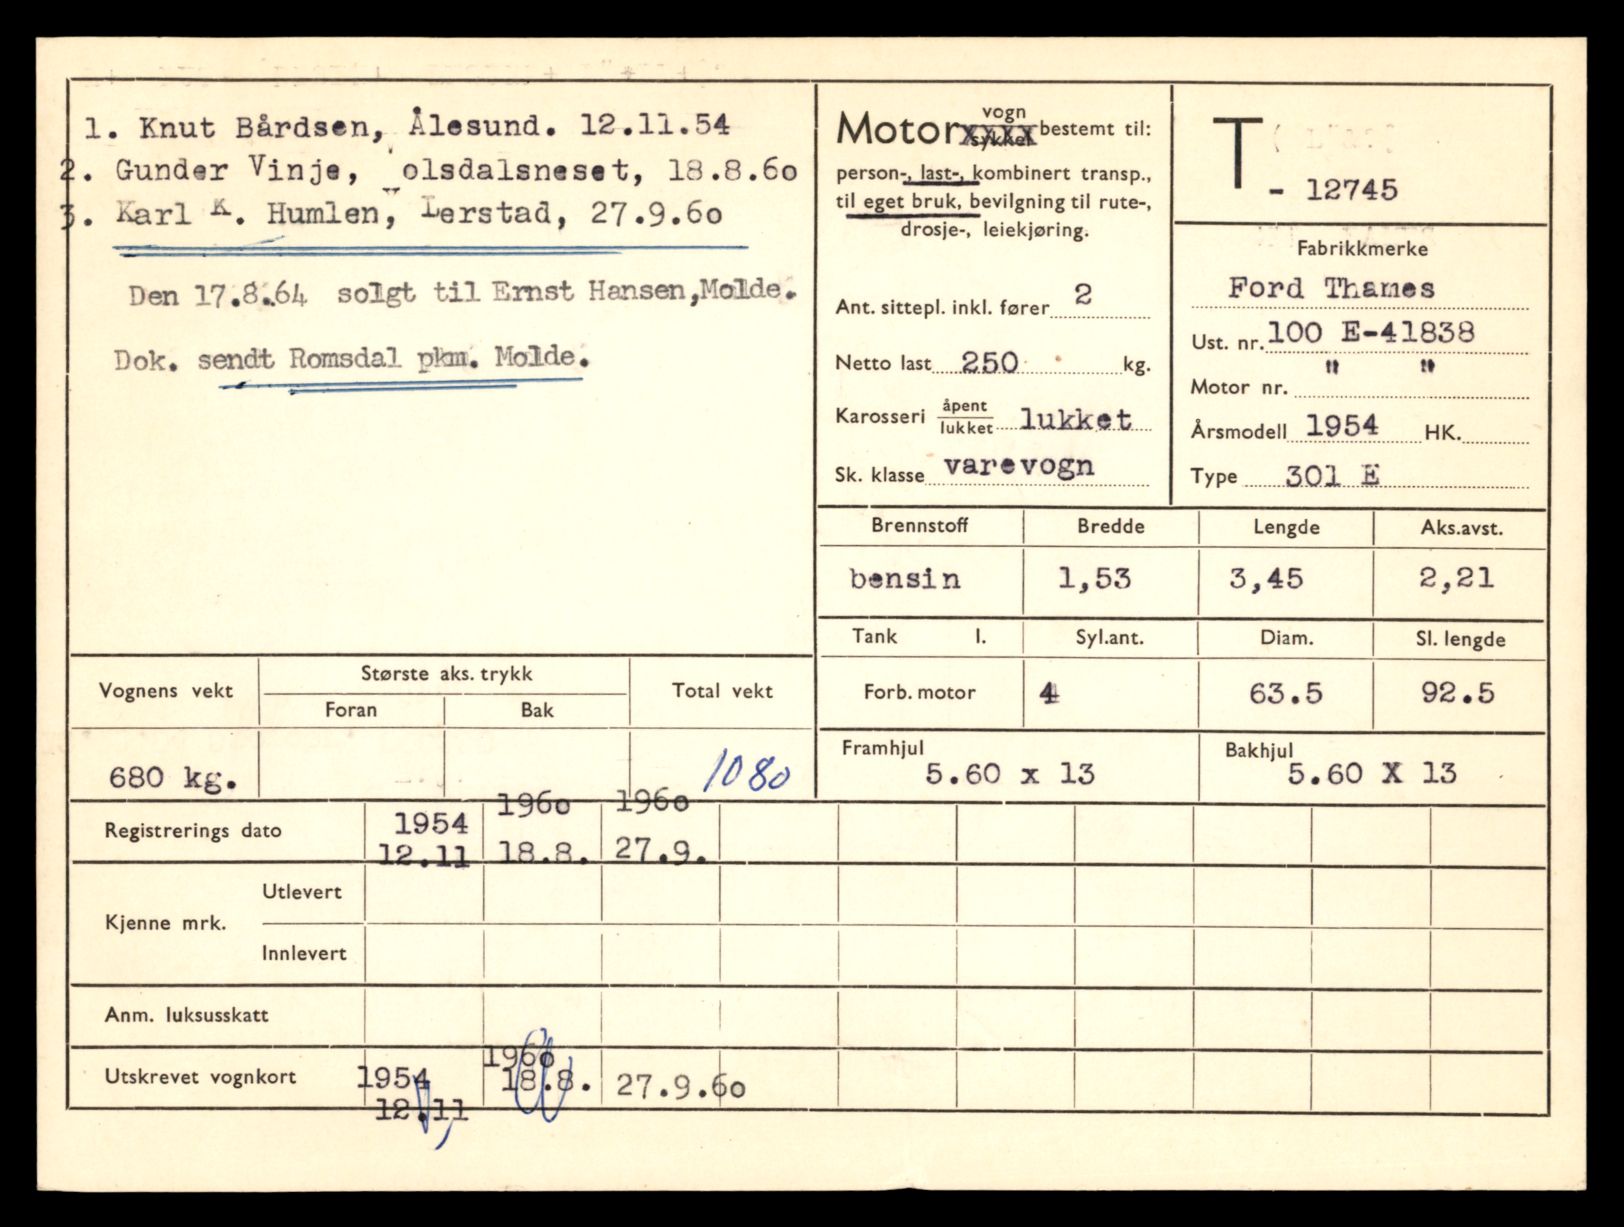 1. Knut Bårdsen, Ålesund. 12.11.54
2. Gunder Vinje, olsdalsneset, 18.8.6o
3. Karl K. Humlen, Lerstad, 27.9.6o
Den 17.8.64 solgt til Ernst Hansen, Molde.
Dok. sendt Romsdal pkm. Molde.
Motor vogn sykkel bestemt til:
person-, last-, kombinert transp.,
til eget bruk, bevilgning til rute-,
drosje-, leiekjøring.
Ant. sittepl. inkl. fører 2
Netto last 250 kg.
Karosseri åpent lukket lukket
Sk. klasse varevogn
T - 12745
Fabrikkmerke
Ford Thames
Ust. nr. 100 E-41838
Motor nr. " "
Årsmodell 1954 HK.
Type 301 E
Brennstoff Bredde Lengde Aks.avst.
bensin 1,53 3,45 2,21
Tank l. Syl.ant. Diam. Sl. lengde
Forb. motor 4 63.5 92.5
Framhjul 5.60 x 13 Bakhjul 5.60 X 13
Vognens vekt Største aks. trykk Total vekt
Foran Bak
680 kg. 1080
Registrerings dato 1954 12.11 196o 18.8. 196o 27.9.
Kjenne mrk. Utlevert
Innlevert
Anm. luksusskatt
Utskrevet vognkort 1954 12.11 196o 18.8. 27.9.6o